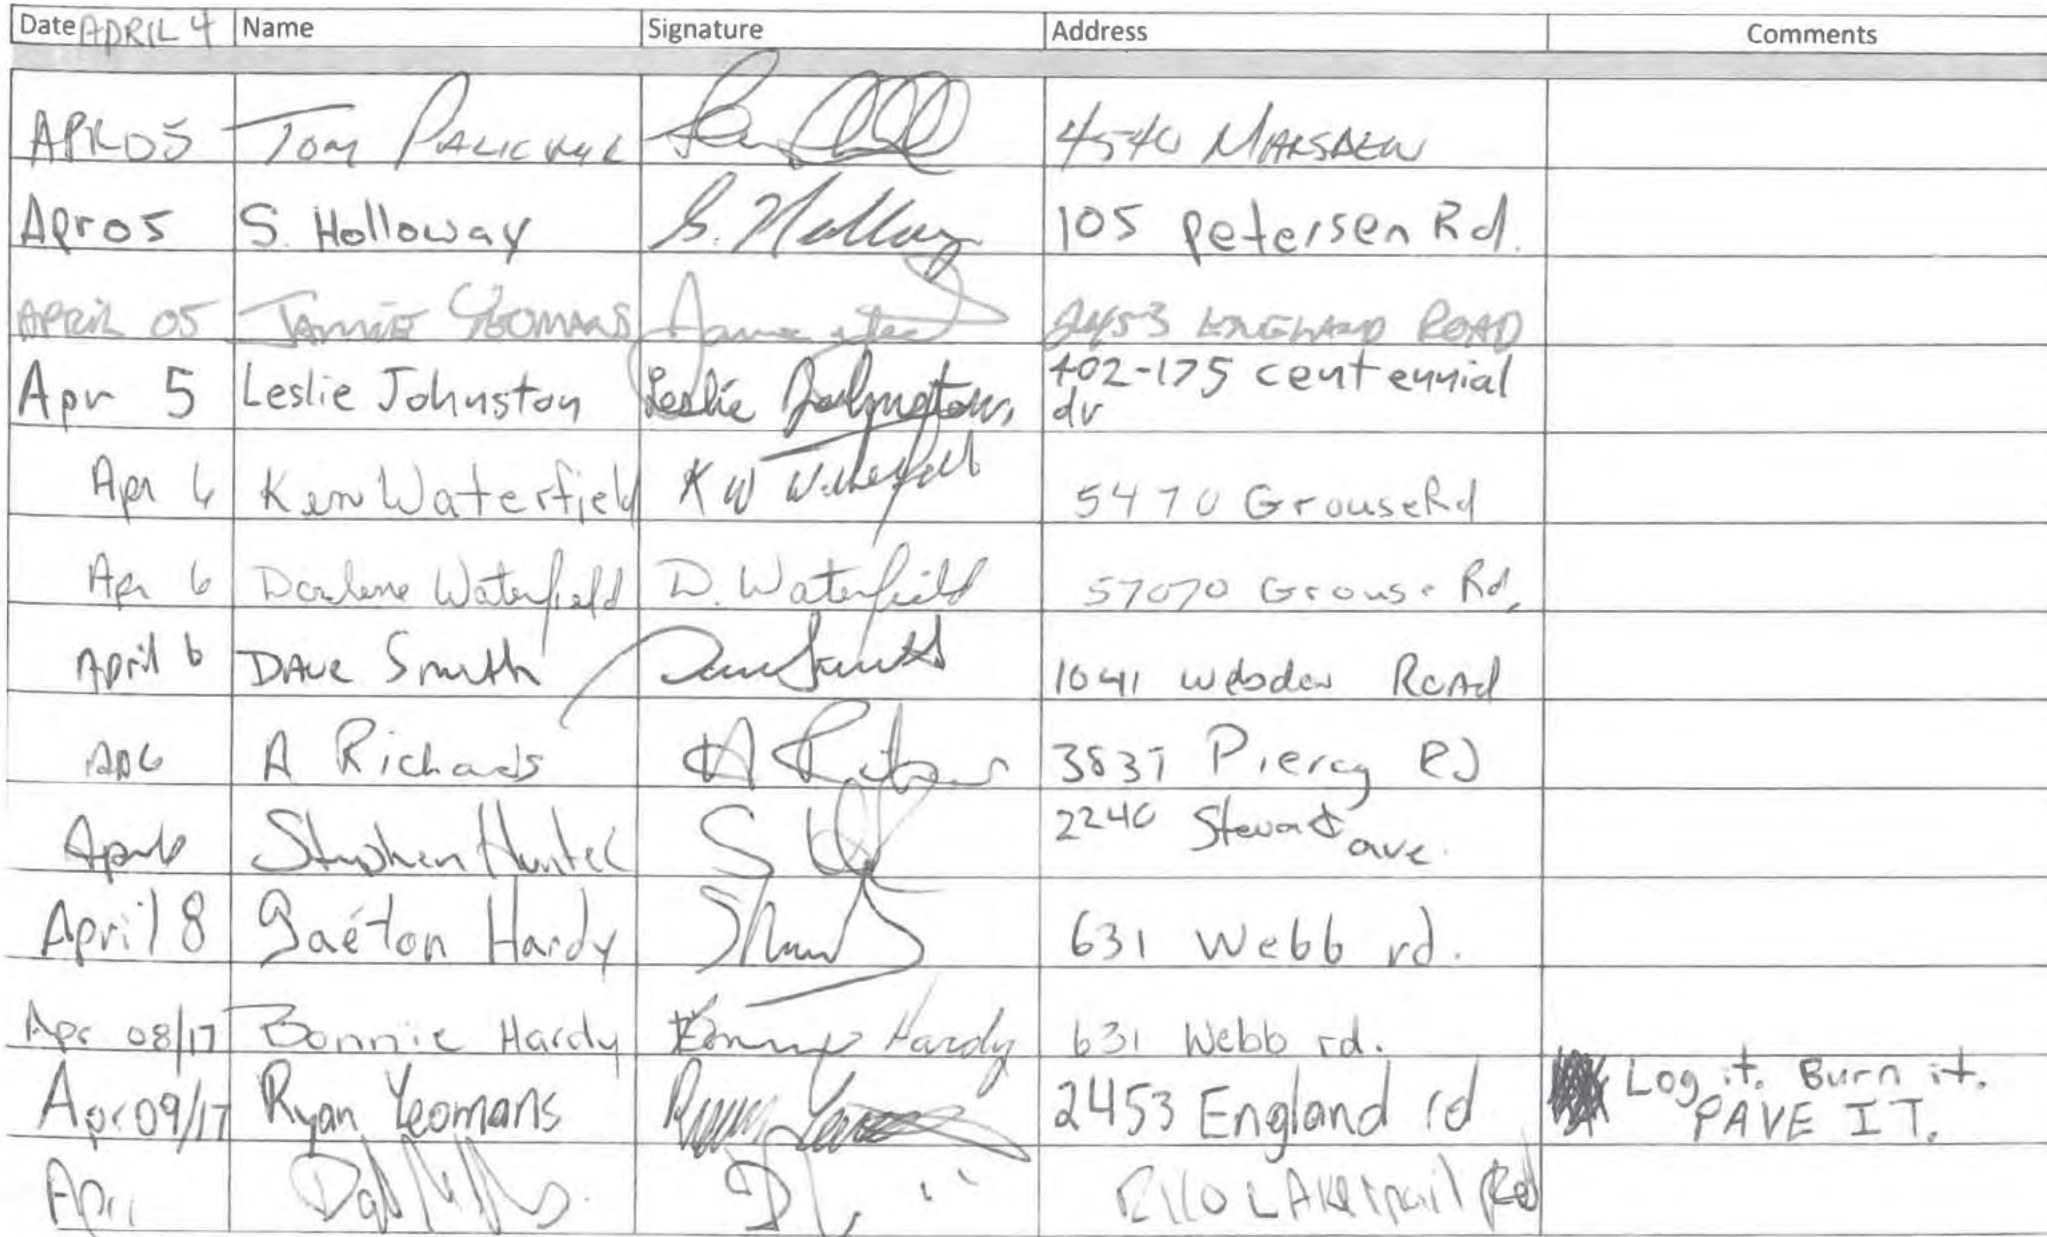 Date APRIL 4 Name Signature Address Comments
APR 05 Tom 4540 MARSDEN
Apr 05 S. Holloway S. Holloway 105 petersen Rd.
APRIL 05 JAMIE YEOMANS 2453 ENGLAND ROAD
Apr 5 Leslie Johnston Leslie Johnston 402-175 centennial
dr
Apr 6 Ken Waterfield K W Waterfield 5470 Grouse Rd
Apr 6 Darlene Waterfield D. Waterfield 57070 Grouse Rd,
April 6 DAVE Smith Dave Smith 1041 Road
Ap 6 A Richards A 3837 Piercy Rd
2240 Stewart
Apr 6 Stephen Hunter S ave.
April 8 Gaéton Hardy 631 Webb rd.
Apr 08/17 Bonnie Hardy Bonnie Hardy 631 Webb rd.
Apr 09/17 Ryan Yeomans Ryan 2453 England rd Log it. Burn it.
PAVE IT.
Apri LAKE Rd